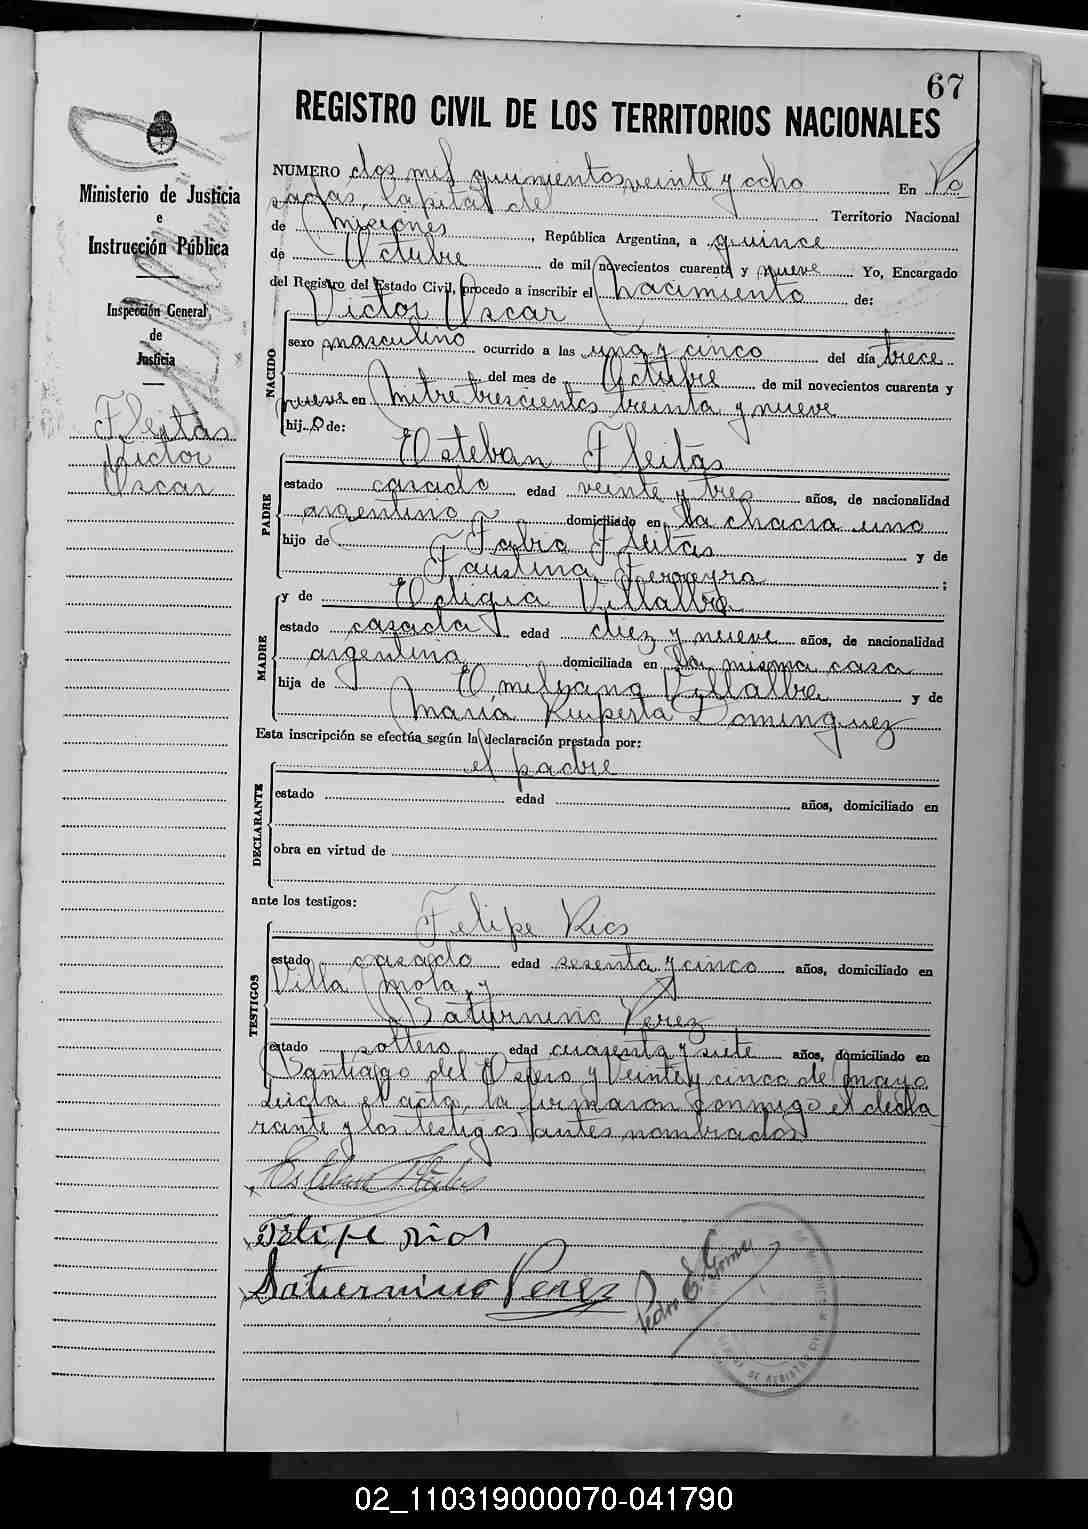 67
REGISTRO CIVIL DE LOS TERRITORIOS NACIONALES
Ministerio de Justicia
e
Instrucción Pública
Inspección General
de
Justicia
Fleitas
Victor
Oscar
NUMERO dos mil quinientos veinte y ocho En Po
sadas, Capital de Territorio Nacional
de Misiones, República Argentina, a quince
de Octubre de mil novecientos cuarenta y nueve Yo, Encargado
del Registro del Estado Civil, procedo a inscribir el Nacimiento de:
Victor Oscar
NACIDO
sexo masculino ocurrido a las una y cinco del día trece
del mes de Octubre de mil novecientos cuarenta y
nueve en Mitre trescientos treinta y nueve
hij o de:
Esteban Fleitas
PADRE
estado casado edad veinte y tres años, de nacionalidad
argentino domiciliado en la chacra uno
hijo de Fabio Fleitas y de
Faustina Ferreyra ;
MADRE
y de Eligia Villalba
estado casada edad diez y nueve años, de nacionalidad
argentina domiciliada en la misma casa
hija de Emilyana Villalba y de
Maria Ruperta Dominguez
Esta inscripción se efectúa según la declaración prestada por:
el padre
DECLARANTE
estado edad años, domiciliado en
obra en virtud de
ante los testigos:
Felipe Rios
TESTIGOS
estado casado edad sesenta y cinco años, domiciliado en
Villa Mola, y
Saturnino Perez
estado soltero edad cuarenta y siete años, domiciliado en
Santiago del Estero y Veinte y cinco de Mayo
Leida el acta, la firmaron conmigo el decla
rante y los testigos antes nombrados
Esteban Fleitas
Felipe Rios
Saturnino Perez
Pedro E. Gomez
02_110319000070-041790